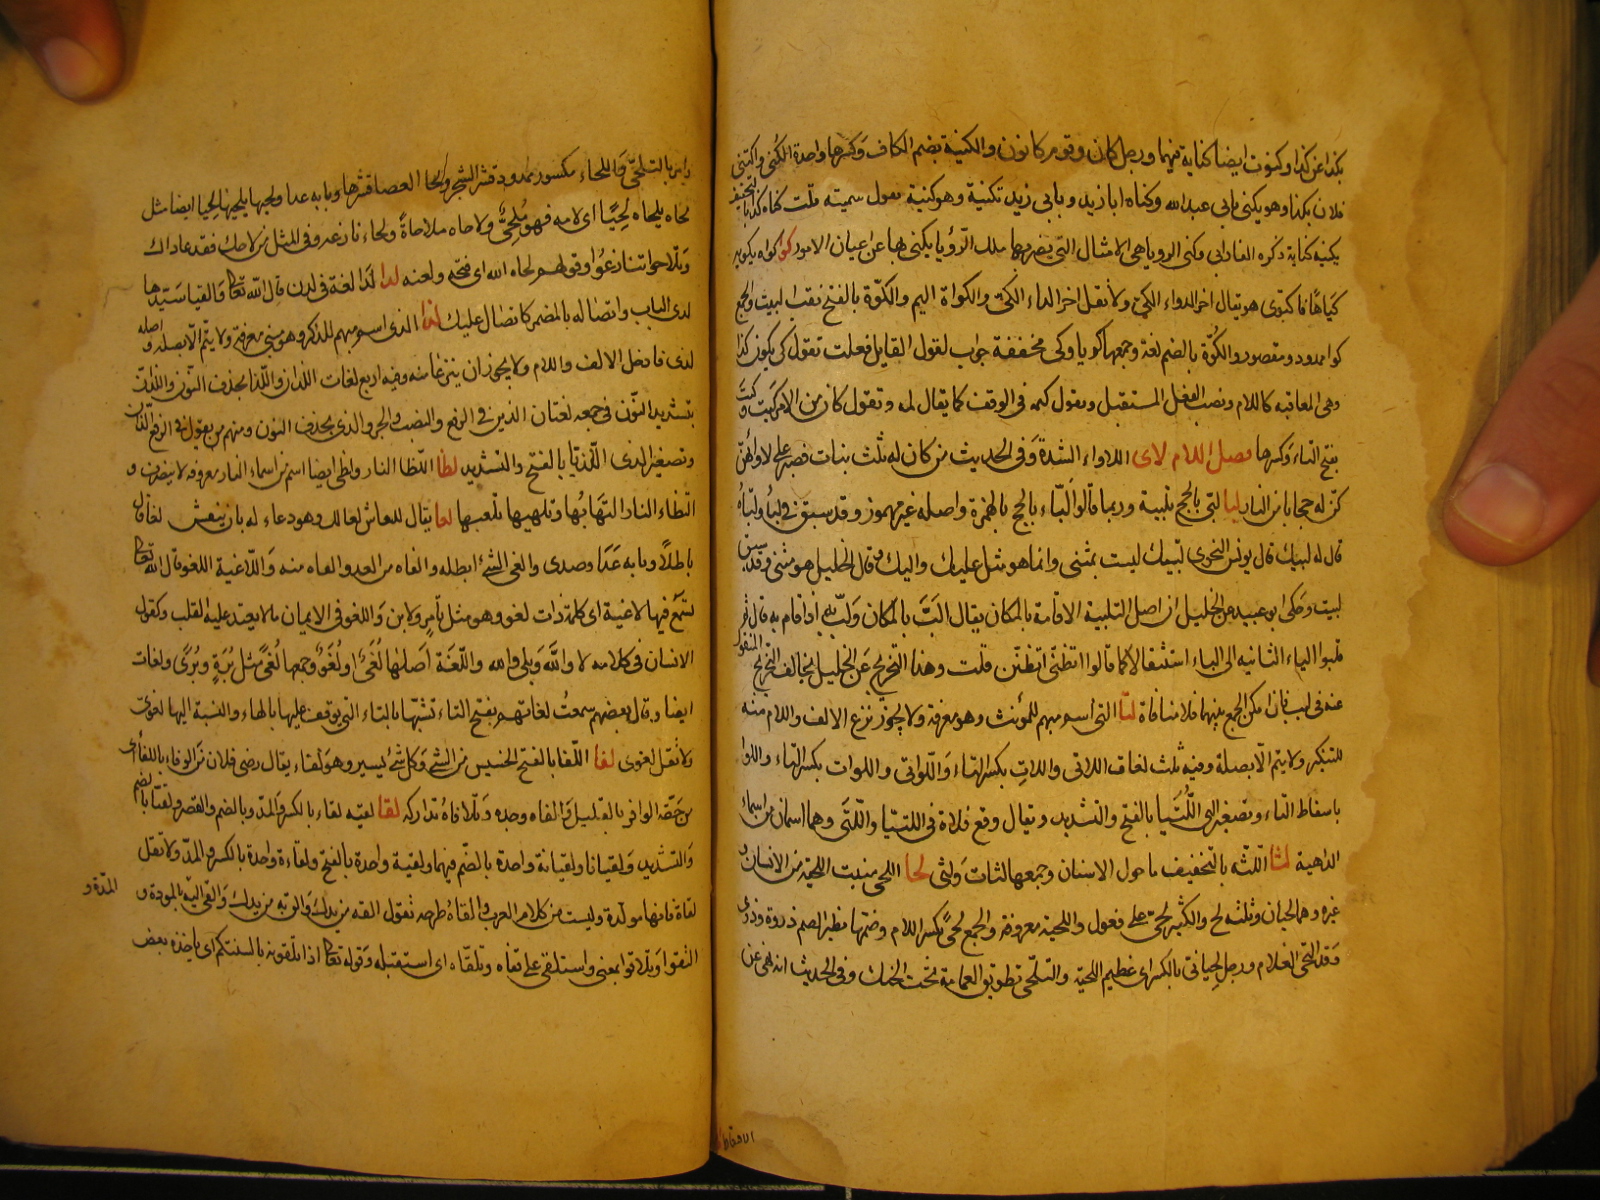 بكذا عن كذا وكنوت ايضا كناية فيهما ورجل كان وقوم كانون والكنية بضم الكاف وكسرها واحدة الكنى واكتنى
فلان بكذا وهو يكنى بابى عبد الله وكناه ابا زيد وبابى زيد تكنية وهو كنيه تقول سميته قلت كناه كذا بالتخفيف
يكنيه كناية ذكره الفارابى وكنى الرويا هى الامثال التى يضربها ملك الرؤيا يكنى بها عن اعيان الامور كوا كواه يكويه
كيا فاكتوى هو يقال اخر الدواء الكى ولا تقل اخر الداء الكى والكواة الميسم والكوة بالفتح نقب البيت والجمع
كوا ممدود ومقصور والكوة بالضم لغة وجمعها كوى يا وكى مخففة جواب لقول القايل لم فعلت تقول كى يكون كذا
وهى للعاقبة كاللام وتنصب الفعل المستقبل وتقول كيمه فى الوقف كما يقال لمه وتقول كان من الامر كيت وكيت
بفتح التاء وكسرها فصل اللام لاى اللاواء الشدة وفى الحديث من كان له ثلث بنات فصبر على لاوائهن
كن له حجابا من النار لبا لبى بالحج تلبية وربما قالوا لباء بالحج بالهمزة واصله غير مهموز وقد سبق فى لبا ولباه
قال له لبيك قال يونس النحوى لبيك ليست بمثنى وانما هو مثل عليك واليك وقال الخليل هو مثنى وقد سبق
لبيت وحكى ابو عبيد عن الخليل ان اصل التلبية الاقامة بالمكان يقال الب بالمكان ولب به اذا قام به قال ثم
قلبوا الياء الثانية الى الياء استثقالا كما قالوا تظنى اى تظنن قلت وهذا التخريج عن الخليل يخالف التخريج المنقول
عنه فى لب فان امكن الجمع بينهما فلا منافاة لتا التى اسم مبهم للمؤنث وهو معرفة ولا يجوز نزع الالف واللام منه
للتنكير ولا يتم الا بصلة وفيه ثلث لغات اللاتى واللات بكسر التاء واللواتى واللوات بكسر التاء واللوا
باسقاط التاء وتصغير التى اللتيا بالفتح والتشديد ويقال وقع فلان فى اللتيا والتى وهما اسمان من اسماء
الداهية لثا اللثة بالتخفيف ما حول الاسنان وجمعها لثات ولثى لحا اللحى منبت اللحية من الانسان و
غيره وهما لحيان وثلثة لح والكثير لحى على فعول واللحية معروفة والجمع لحى بكسر اللام وضمها نظير الضم ذروة وذرى
وقد التحى الغلام ورجل لحيانى بالكسر اى عظيم اللحية والتلحى تطويق العمامة تحت الحنك وفى الحديث انه نهى عن
الاقعاط
وامر بالتلحى واللحاء مكسور ممدود قشر الشجر ولحا العصا قشرها وبابه عدا ولحيها يلحيها لحيا ايضا مثل
لحاه يلحاه لحيا اى لامه فهو ملحى ولاحاه ملاحاة ولحاء نازعه وفى المثل من لاحاك فقد عاداك
وتلاحوا تنازعوا وقولهم لحاه الله اى قبحه ولعنه لدا لدا لغة فى لدن قال الله تعالى والفيا سيدها
لدى الباب واتصاله بالمضمر كاتصال عليك لذا الذى اسم مبهم للمذكر وهو مبنى معرفة ولا يتم الا بصلة واصله
لذى فادخل الالف واللام ولا يجوز ان ينزعا منه وفيه اربع لغات اللذان واللذا بحذف النون واللذان
بتشديد النون فى جمعه لغتان الذين فى الرفع والنصب والجر والذى بحذف النون ومنهم من يقول فى الرفع اللذون
وتصغير الذى اللذيا بالفتح والتشديد لظا اللظا النار ولظى ايضا اسم من اسماء النار معرفة لا ينصرف و
التظاء النار التهابها وتلهبها تلعبها لعا يقال للعاثر لعا لك وهو دعاء له بان ينتعش لغا قال
باطلا وبابه عدا وصدى والغى الشئ ابطله والغاه من العدو القاه منه واللاغية اللغو قال الله تعالى
لا تسمع فيها لاغية اى كلمة ذات لغو وهو مثل تامر ولابن واللغو فى الايمان ما لا يعتد عليه القلب وكقول
الانسان فى كلامه لا والله وبلى والله واللغة اصلها لغى او لغو وجمعها لغى مثل برة وبرى ولغات
ايضا وقال بعضهم سمعت لغاتهم بفتح التاء تشبها بالتاء التى يوقف عليها بالهاء والنسبة اليها لغوى
ولا تقل لغوى لفا اللفا بالفتح الخسيس من الشئ وكل شئ يسير وهو لفاء يقال رضى فلان من الوفاء باللفا اى
من حقه الوافر بالقليل والفاه وجده وتلافاه تداركه لقا لقيه لقاء بالكسر والمد وبالضم والقصر ولقيا بالضم
والتشديد ولقيانا ولقيانة واحدة بالضم فيهما ولقية واحدة بالفتح ولقاءة واحدة بالكسر والمد ولا تقل
لقاة فانها مولدة وليست من كلام العرب والقاه طرحه تقول القه من يدك والق به من يدك والقى اليه بالمودة و
المدة و
التقوا وتلاقوا بمعنى واستلقى على قفاه وتلقاه اى استقبله وقوله تعالى اذ تلقونه بالسنتكم اى ياخذه بعض